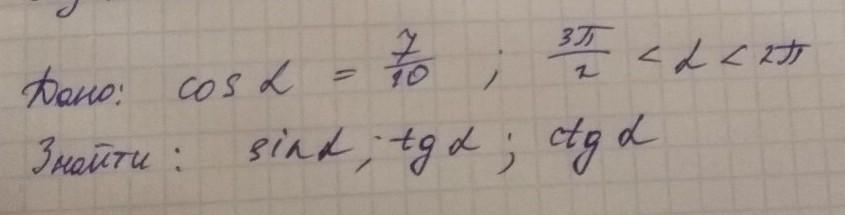 Дано: cos α = 7/10 ; 3π/2 < α < 2π
Знайти: sin α; tg α; ctg α